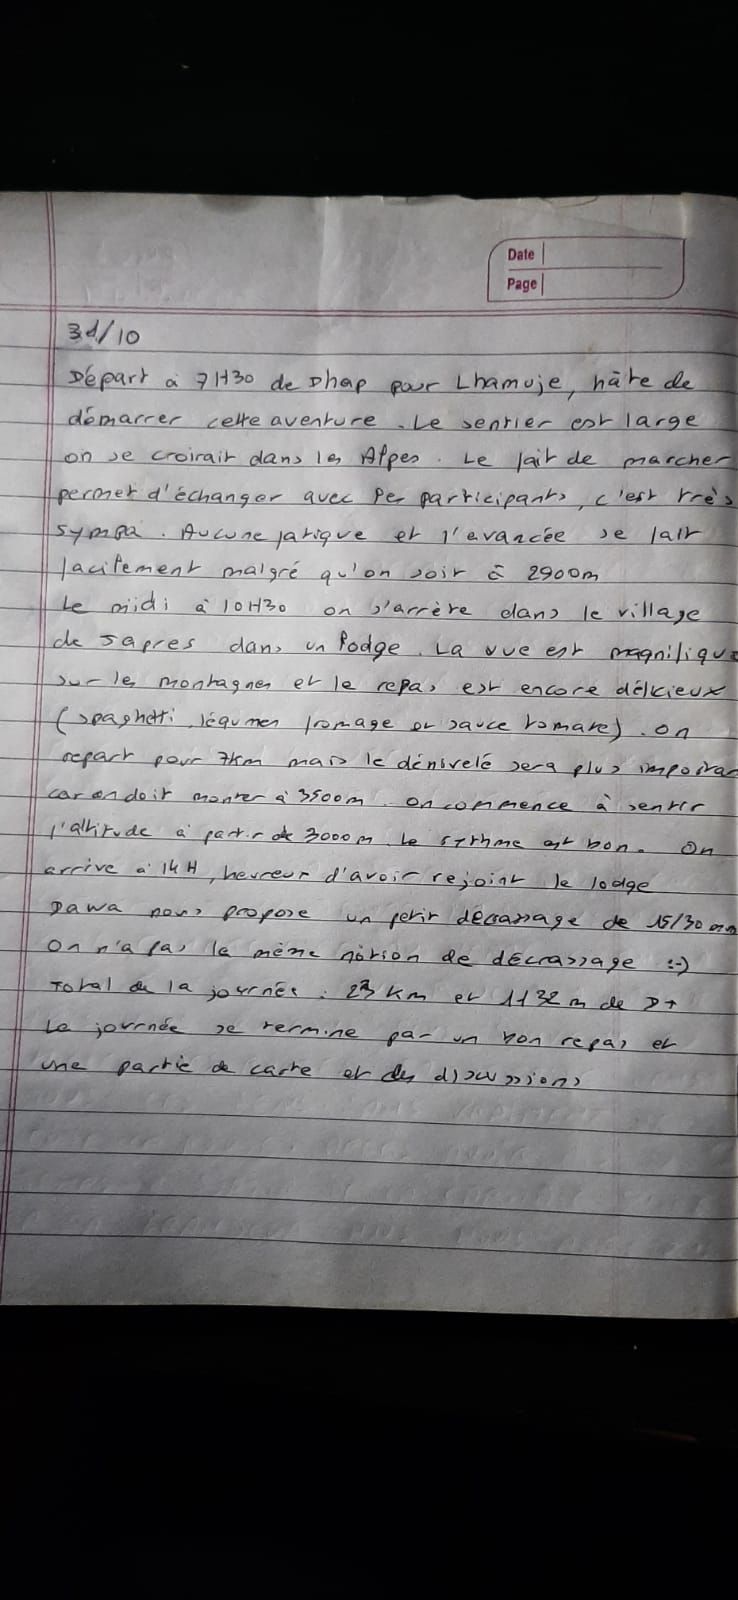 Date
Page
31/10
Départ à 7H30 de Dhap pour Lhamuje, hâte de
démarrer cette aventure. Le sentier est large
on se croirait dans les Alpes. Le fait de marcher
permet d'échanger avec les participants, c'est très
sympa. Aucune fatigue et l'avancée se fait
facilement malgré qu'on soit à 2900m
Le midi à 10H30 on s'arrête dans le village
de Japres dans un lodge. La vue est magnifique
sur les montagnes et le repas est encore délicieux
(spaghetti, légumes fromage et sauce tomate). On
repart pour 7km mais le dénivelé sera plus important
car on doit monter à 3500m. On commence à sentir
l'altitude à partir de 3000m. Le rythme est bon. On
arrive à 14H, heureux d'avoir rejoint le lodge
Dawa nous propose un petit décrassage de 15/30 mn
On n'a pas la même notion de décrassage :-)
Total de la journée : 23 km et 1132 m de D+
La journée se termine par un bon repas et
une partie de carte et des discussions